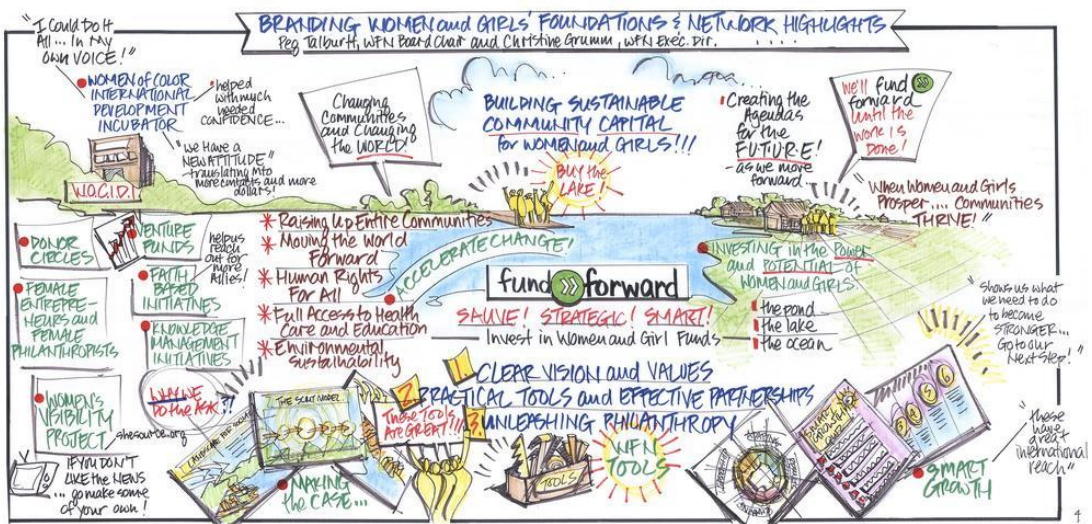 BRANDING WOMEN and GIRLS' FOUNDATIONS & NETWORK HIGHLIGHTS
Peg Talburtt, WFN Board Chair and Christine Grumm, WFN Exec. Dir.
"I Could Do It
All... In My
OWN VOICE!"
WOMEN of COLOR
INTERNATIONAL
DEVELOPMENT
INCUBATOR
helped
with much
needed
CONFIDENCE...
"We Have a
NEW ATTITUDE"
- translating into
more contacts and more
dollars!
W.O.C.I.D.!
Changing
Communities
and Changing
the WORLD!
BUILDING SUSTAINABLE
COMMUNITY CAPITAL
for WOMEN and GIRLS!!!
BUY the
LAKE!
Creating the
Agendas
for the
FUTURE!
- as we move
forward...
We'll fund
forward
until the
work is
Done!
"When Women and Girls
Prosper.... Communities
THRIVE!"
DONOR
CIRCLES
VENTURE
FUNDS
helps us
reach
out for
more
Allies!
FAITH
BASED
INITIATIVES
FEMALE
ENTREPRE-
NEURS and
FEMALE
PHILANTHROPISTS
KNOWLEDGE
MANAGEMENT
INITIATIVES
WOMEN'S
VISIBILITY
PROJECT
shesource.org
IF YOU DON'T
LIKE the NEWS
... go make some
of your own!
Raising Up Entire Communities
Moving the World
Forward
Human Rights
For All
Full Access to Health
Care and Education
Environmental
Sustainability
ACCELERATE CHANGE!
fund forward
SAUVE! STRATEGIC! SMART!
Invest in Women and Girl Funds
INVESTING in the POWER
and POTENTIAL of
WOMEN and GIRLS:
the pond
the lake
the ocean
"shows us what
we need to do
to become
STRONGER...
Go to our
Next Step!"
WHY WE
Do the ASK?!
THE SCOUT MODEL
MAKING
the CASE...
1. CLEAR VISION and VALUES
2. PRACTICAL TOOLS and EFFECTIVE PARTNERSHIPS
3. UNLEASHING PHILANTHROPY
These TOOLS
Are GREAT!!!
TOOLS
WFN
TOOLS
4 5 6
SMART
GROWTH
"these
have
great
international
reach"
4